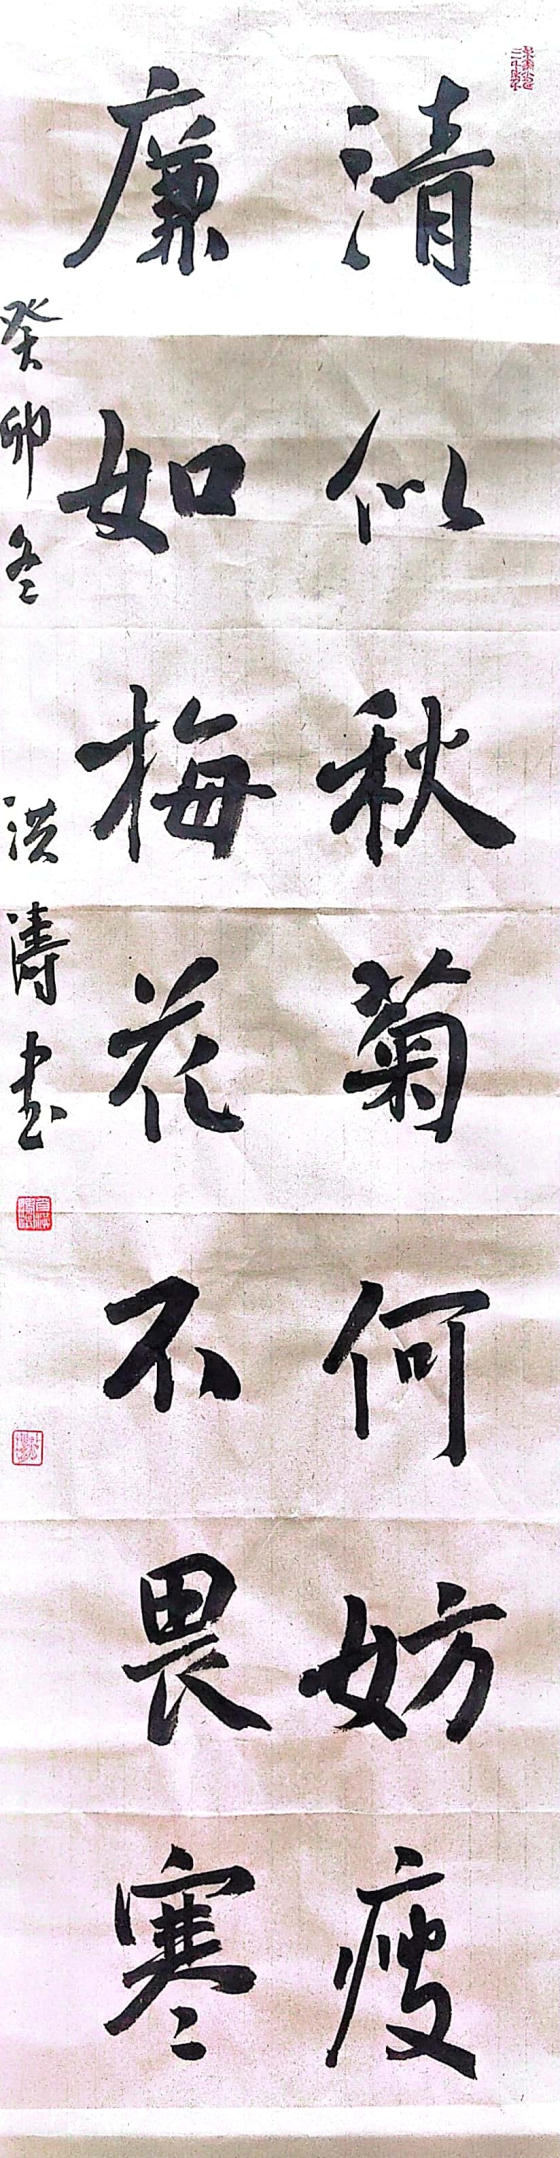 清似秋菊何妨瘦
廉如梅花不畏寒
癸卯冬 洪涛书